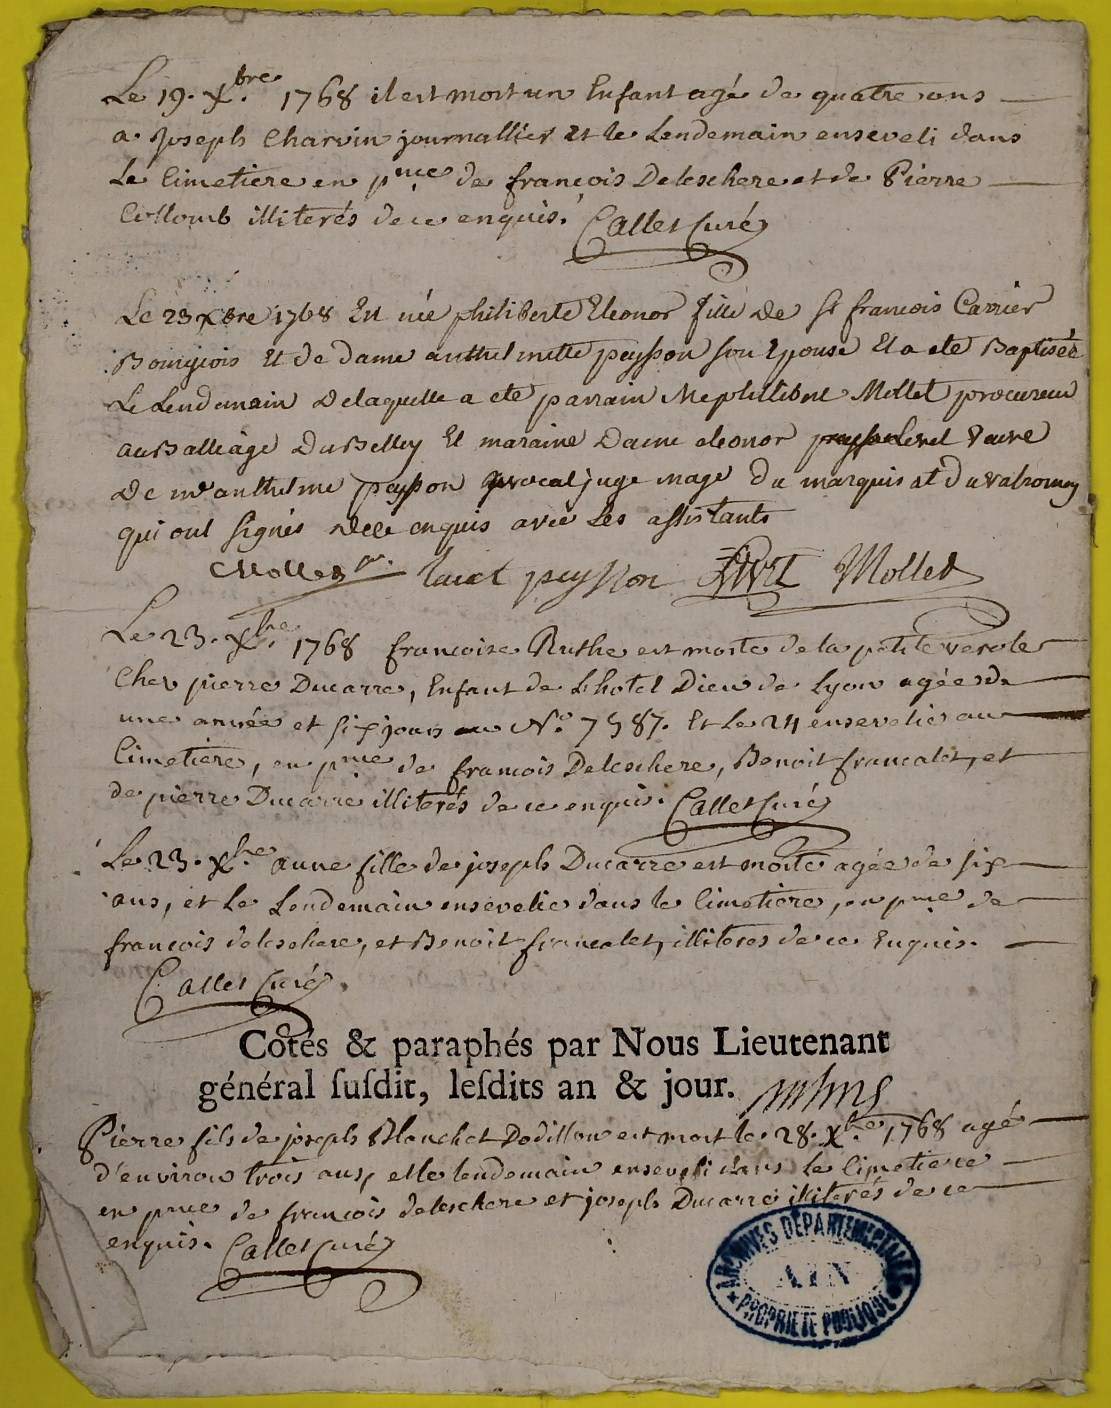 Le 19. Xbre. 1768 il est mort un Enfant agé de quatre ans
a Joseph Charvin journallier et le Lendemain enseveli dans
Le Cimetiere en pnce de françois Deleschere et de Pierre
Collomb illiterés de ce enquis. Callet Curé
Le 23 Xbre 1768 Est née philiberte Eleonor fille de Sr francois Carrier
Bourgeois Et de dame anthelmette peysson son Epouse Et a ete Baptisée
Le Lendemain De laquelle a ete parrain Me philibert Mollet procureur
au Balliage Du Belley Et maraine Dame eleonor veuve
De mr anthelme peysson avocat juge mage du marquisat du valromey
qui ont signés de ce enquis avec Les assistants
Mollet peysson Mollet
Le 23. Xbre. 1768 francoise Ruthe est morte de la petite verole
Chez pierre Ducarre, Enfant de L'hotel Dieu de Lyon agée de
une année et six jours au No. 7587. Et Le 24 ensevelie au
Cimetiere, en pnce de francois Deleschere, Benoit francalet, et
de pierre Ducarre illiterés de ce enquis. Callet Curé
Le 23. Xbre. anne fille de joseph Ducarre est morte agée de six
ans, et Le Lendemain ensevelie dans le Cimetiere, en pnce de
francois deleschere, et Benoit francalet, illiteres de ce Enquis.
Callet Curé.
Cotés & paraphés par Nous Lieutenant
général ſuſdit, leſdits an & jour.
Pierre fils de joseph Blanchet Dodillon est mort le 28. Xbre. 1768 agé
d'environ trois ans, et le lendemain enseveli dans le Cimetiere
en pnce de francois deleschere et joseph Ducarre illiterés de ce
enquis. Callet Curé
ARCHIVES DÉPARTEMENTALES
AIN
PROPRIÉTÉ PUBLIQUE